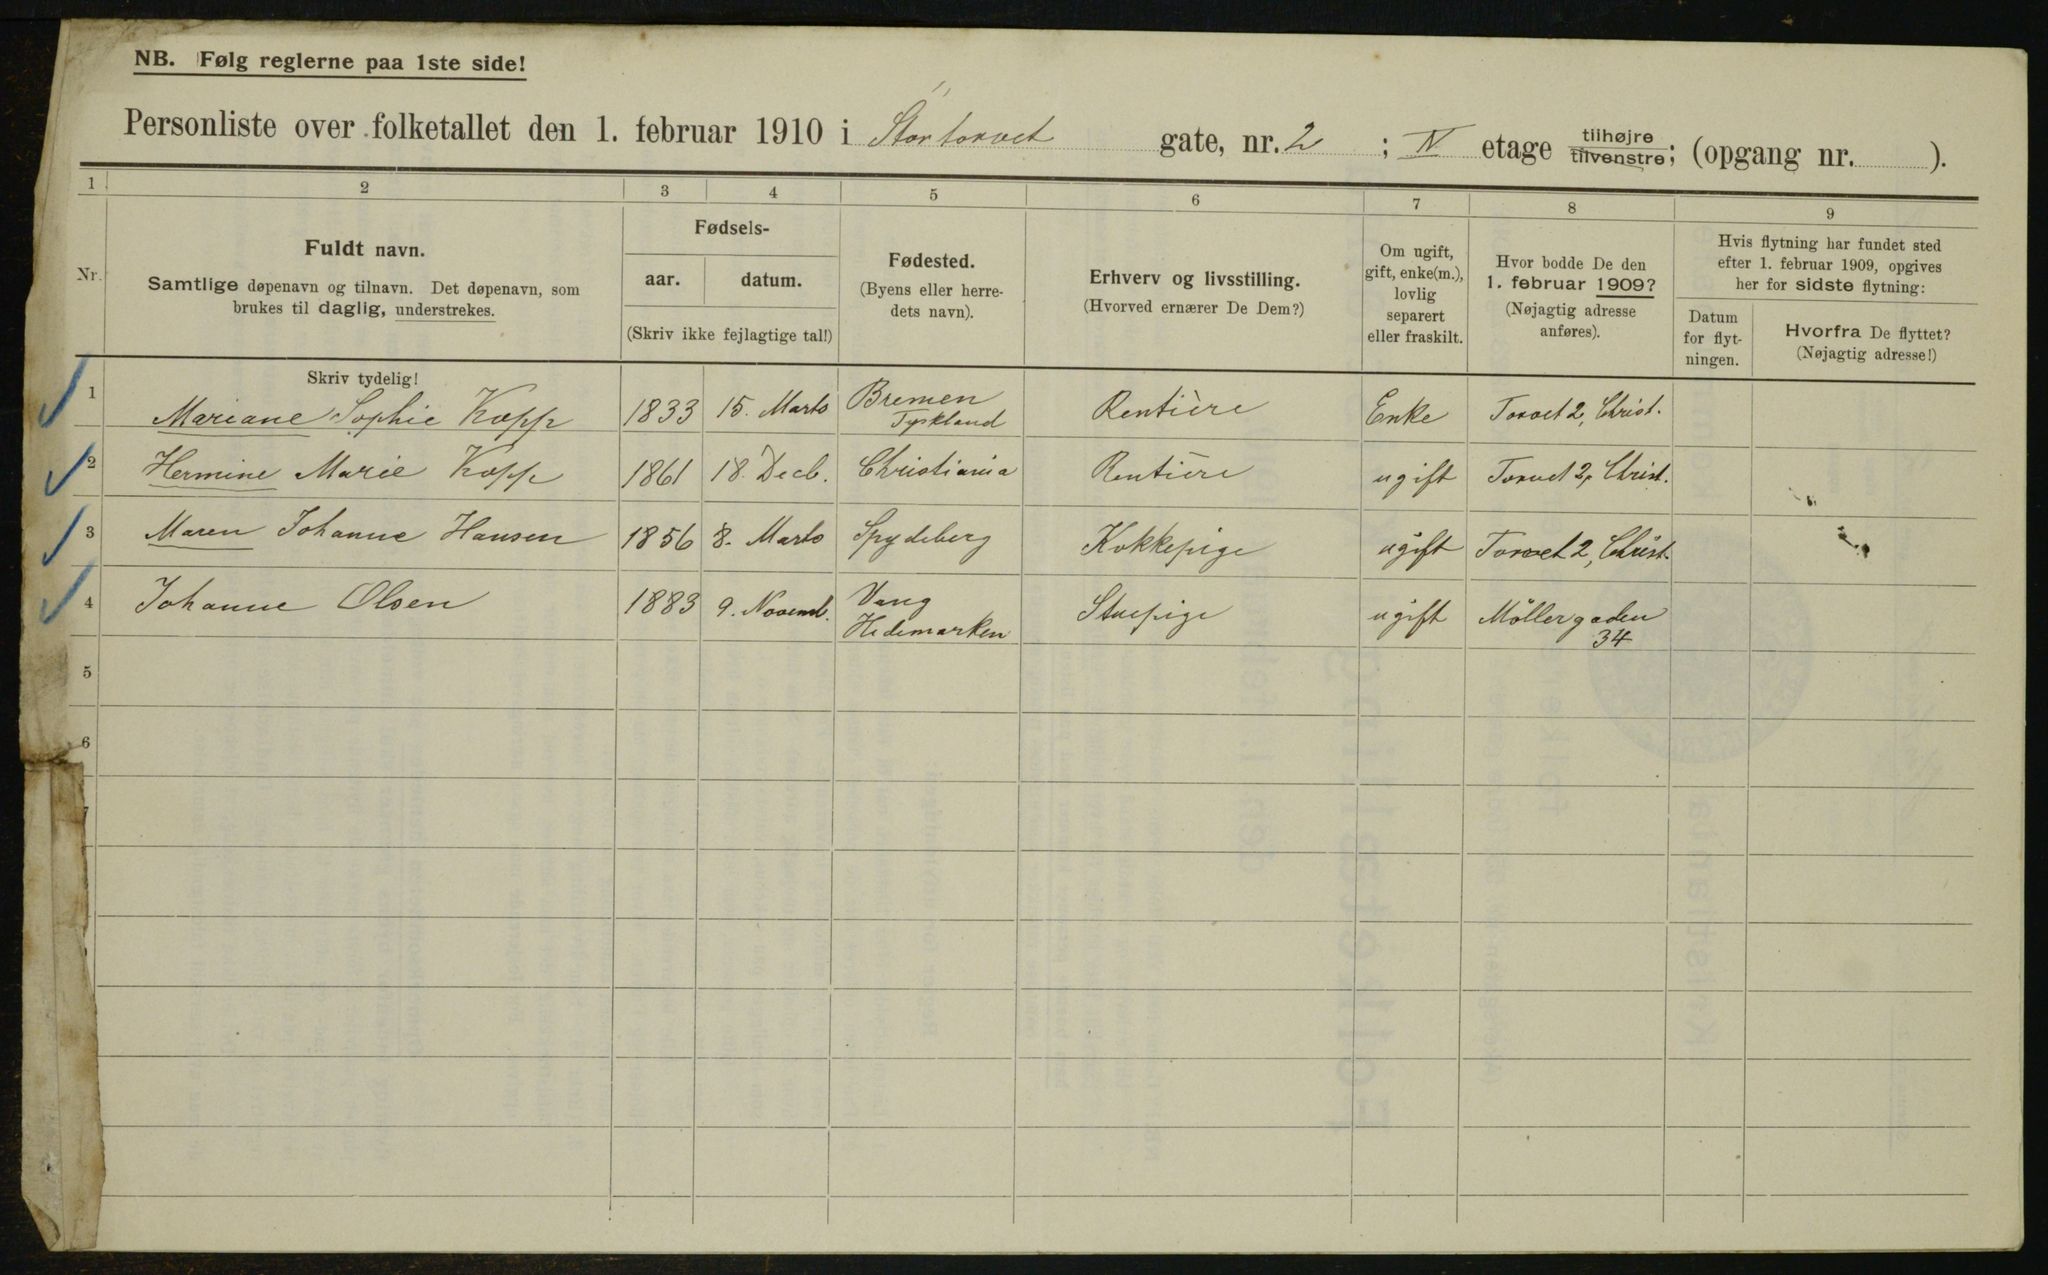 NB. Følg reglerne paa 1ste side!
Personliste over folketallet den 1. februar 1910 i Stortorvet gate, nr. 2 ; IV etage tilhøjre tilvenstre; (opgang nr. ).
1 2 3 4 5 6 7 8 9
Nr.
Fuldt navn.
Samtlige døpenavn og tilnavn. Det døpenavn, som
brukes til daglig, understrekes.
Skriv tydelig!
Fødsels-
aar. datum.
(Skriv ikke fejlagtige tal!)
Fødested.
(Byens eller herre-
dets navn).
Erhverv og livsstilling.
(Hvorved ernærer De Dem?)
Om ugift,
gift, enke(m.),
lovlig
separert
eller fraskilt.
Hvor bodde De den
1. februar 1909?
(Nøjagtig adresse
anføres).
Hvis flytning har fundet sted
efter 1. februar 1909, opgives
her for sidste flytning:
Datum
for flyt-
ningen.
Hvorfra De flyttet?
(Nøjagtig adresse!)
1 Mariane Sophie Kopp 1833 15. Marts Bremen Tyskland Rentière Enke Torvet 2, Christ.
2 Hermine Marie Kopp 1861 18. Decb. Christiania Rentière ugift Torvet 2, Christ.
3 Maren Johanne Hansen 1856 8. Marts Spydeberg Kokkepige ugift Torvet 2, Christ.
4 Johanne Olsen 1883 9. Novemb. Vang Hedemarken Stuepige ugift Möllergaden 34
5
6